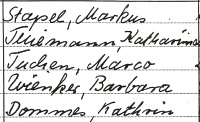 Stapel, Markus
Thiemann, Katharina
Tuchen, Marco
Wienker, Barbara
Dommes, Kathrin